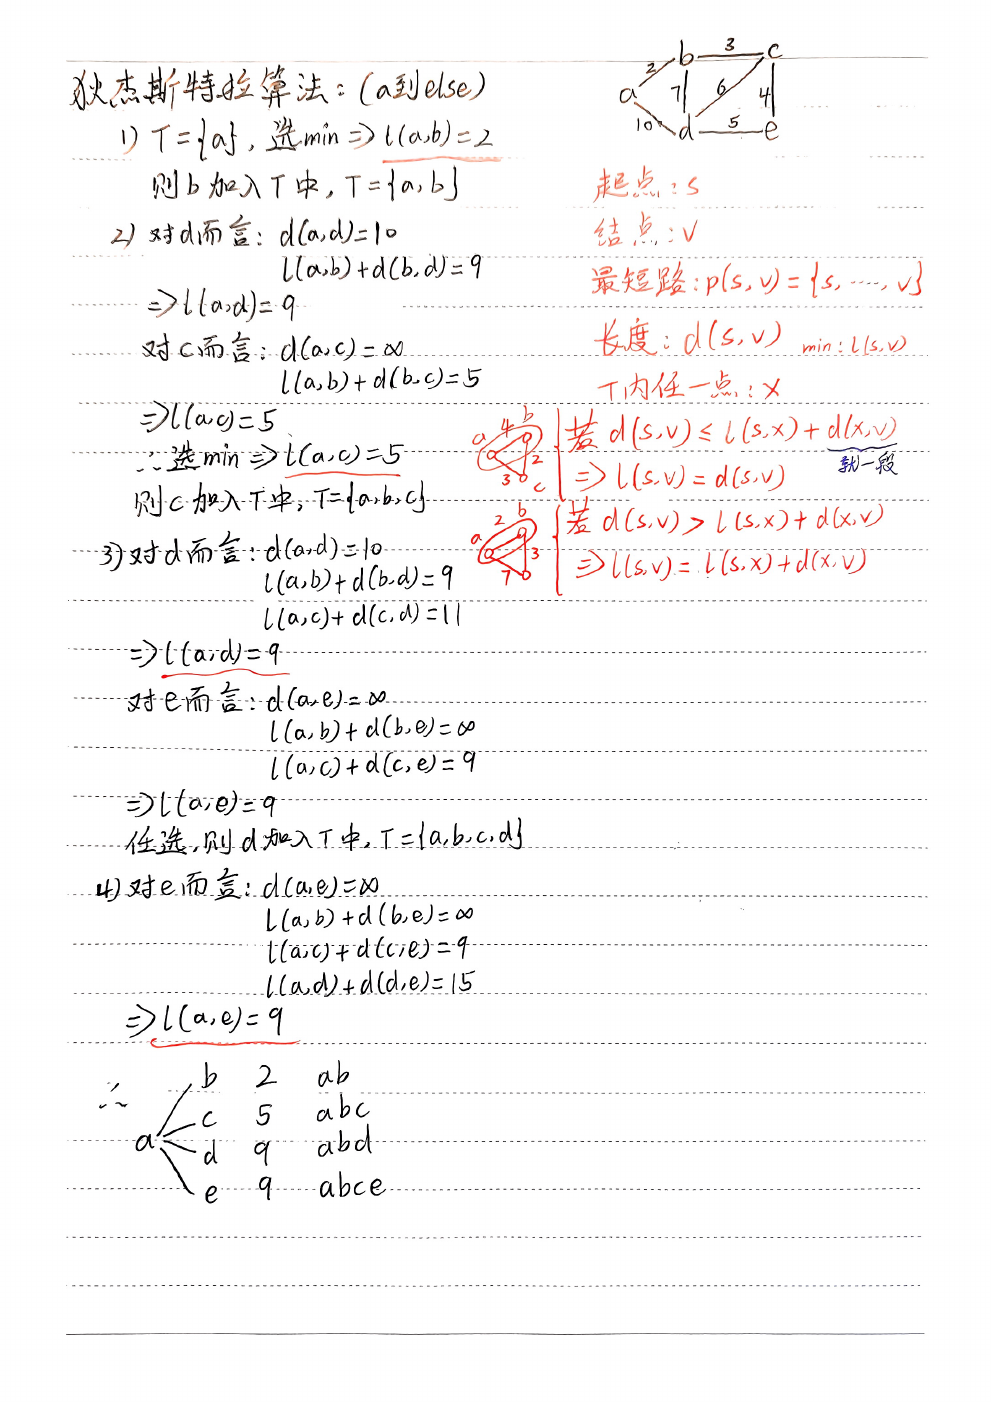 狄杰斯特拉算法：(a到else)
1) T={a}, 选min⇒l(a,b)=2
则b加入T中, T={a,b}
2) 对d而言: d(a,d)=10
l(a,b)+d(b,d)=9
⇒l(a,d)=9
对c而言: d(a,c)=∞
l(a,b)+d(b,c)=5
⇒l(a,c)=5
∴选min⇒l(a,c)=5
则c加入T中, T={a,b,c}
3) 对d而言: d(a,d)=10
l(a,b)+d(b,d)=9
l(a,c)+d(c,d)=11
⇒l(a,d)=9
对e而言: d(a,e)=∞
l(a,b)+d(b,e)=∞
l(a,c)+d(c,e)=9
⇒l(a,e)=9
任选,则d加入T中, T={a,b,c,d}
4) 对e而言: d(a,e)=∞
l(a,b)+d(b,e)=∞
l(a,c)+d(c,e)=9
l(a,d)+d(d,e)=15
⇒l(a,e)=9
∴
b 2 ab
c 5 abc
a
d 9 abd
e 9 abce
b 3 c
2
a 7 6 4
10 d 5 e
起点: s
结点: v
最短路: p(s,v)={s, ……, v}
长度: d(s,v) min: l(s,v)
T内任一点: x
若 d(s,v) ≤ l(s,x)+d(x,v)
就一段
⇒ l(s,v) = d(s,v)
a 4 b
2
3 c
若 d(s,v) > l(s,x)+d(x,v)
⇒ l(s,v) = l(s,x)+d(x,v)
a 2 b
3
7